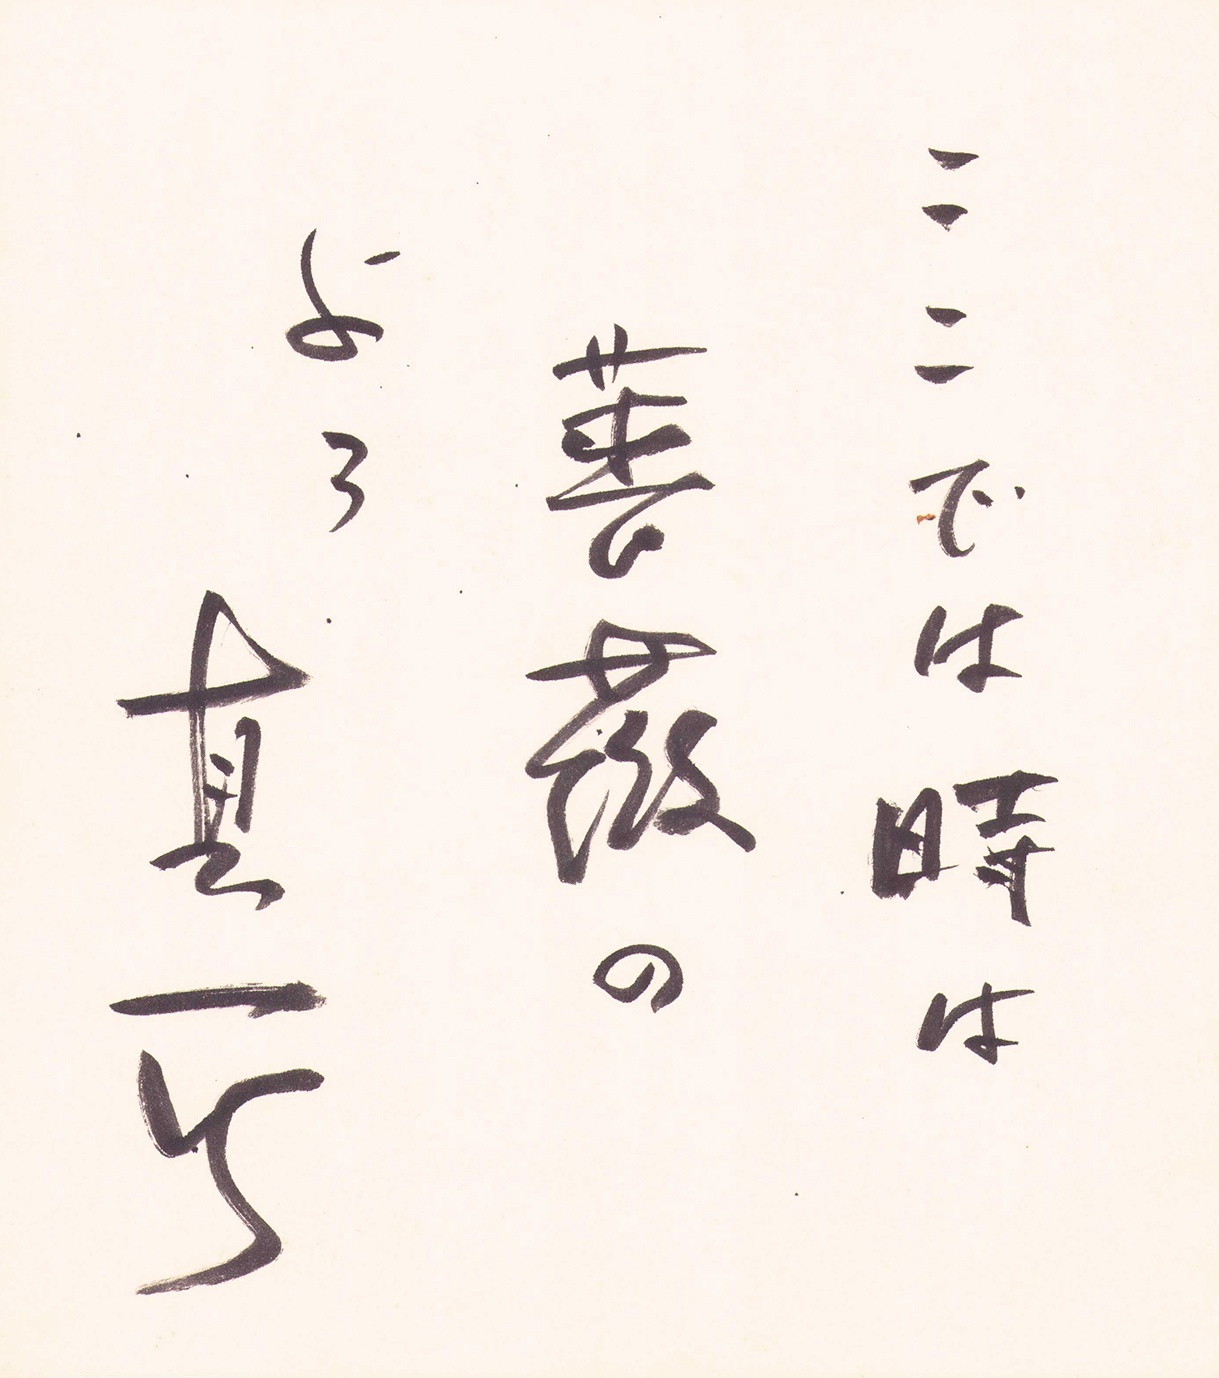 ここでは時は
薔薇の
よう
真一郎